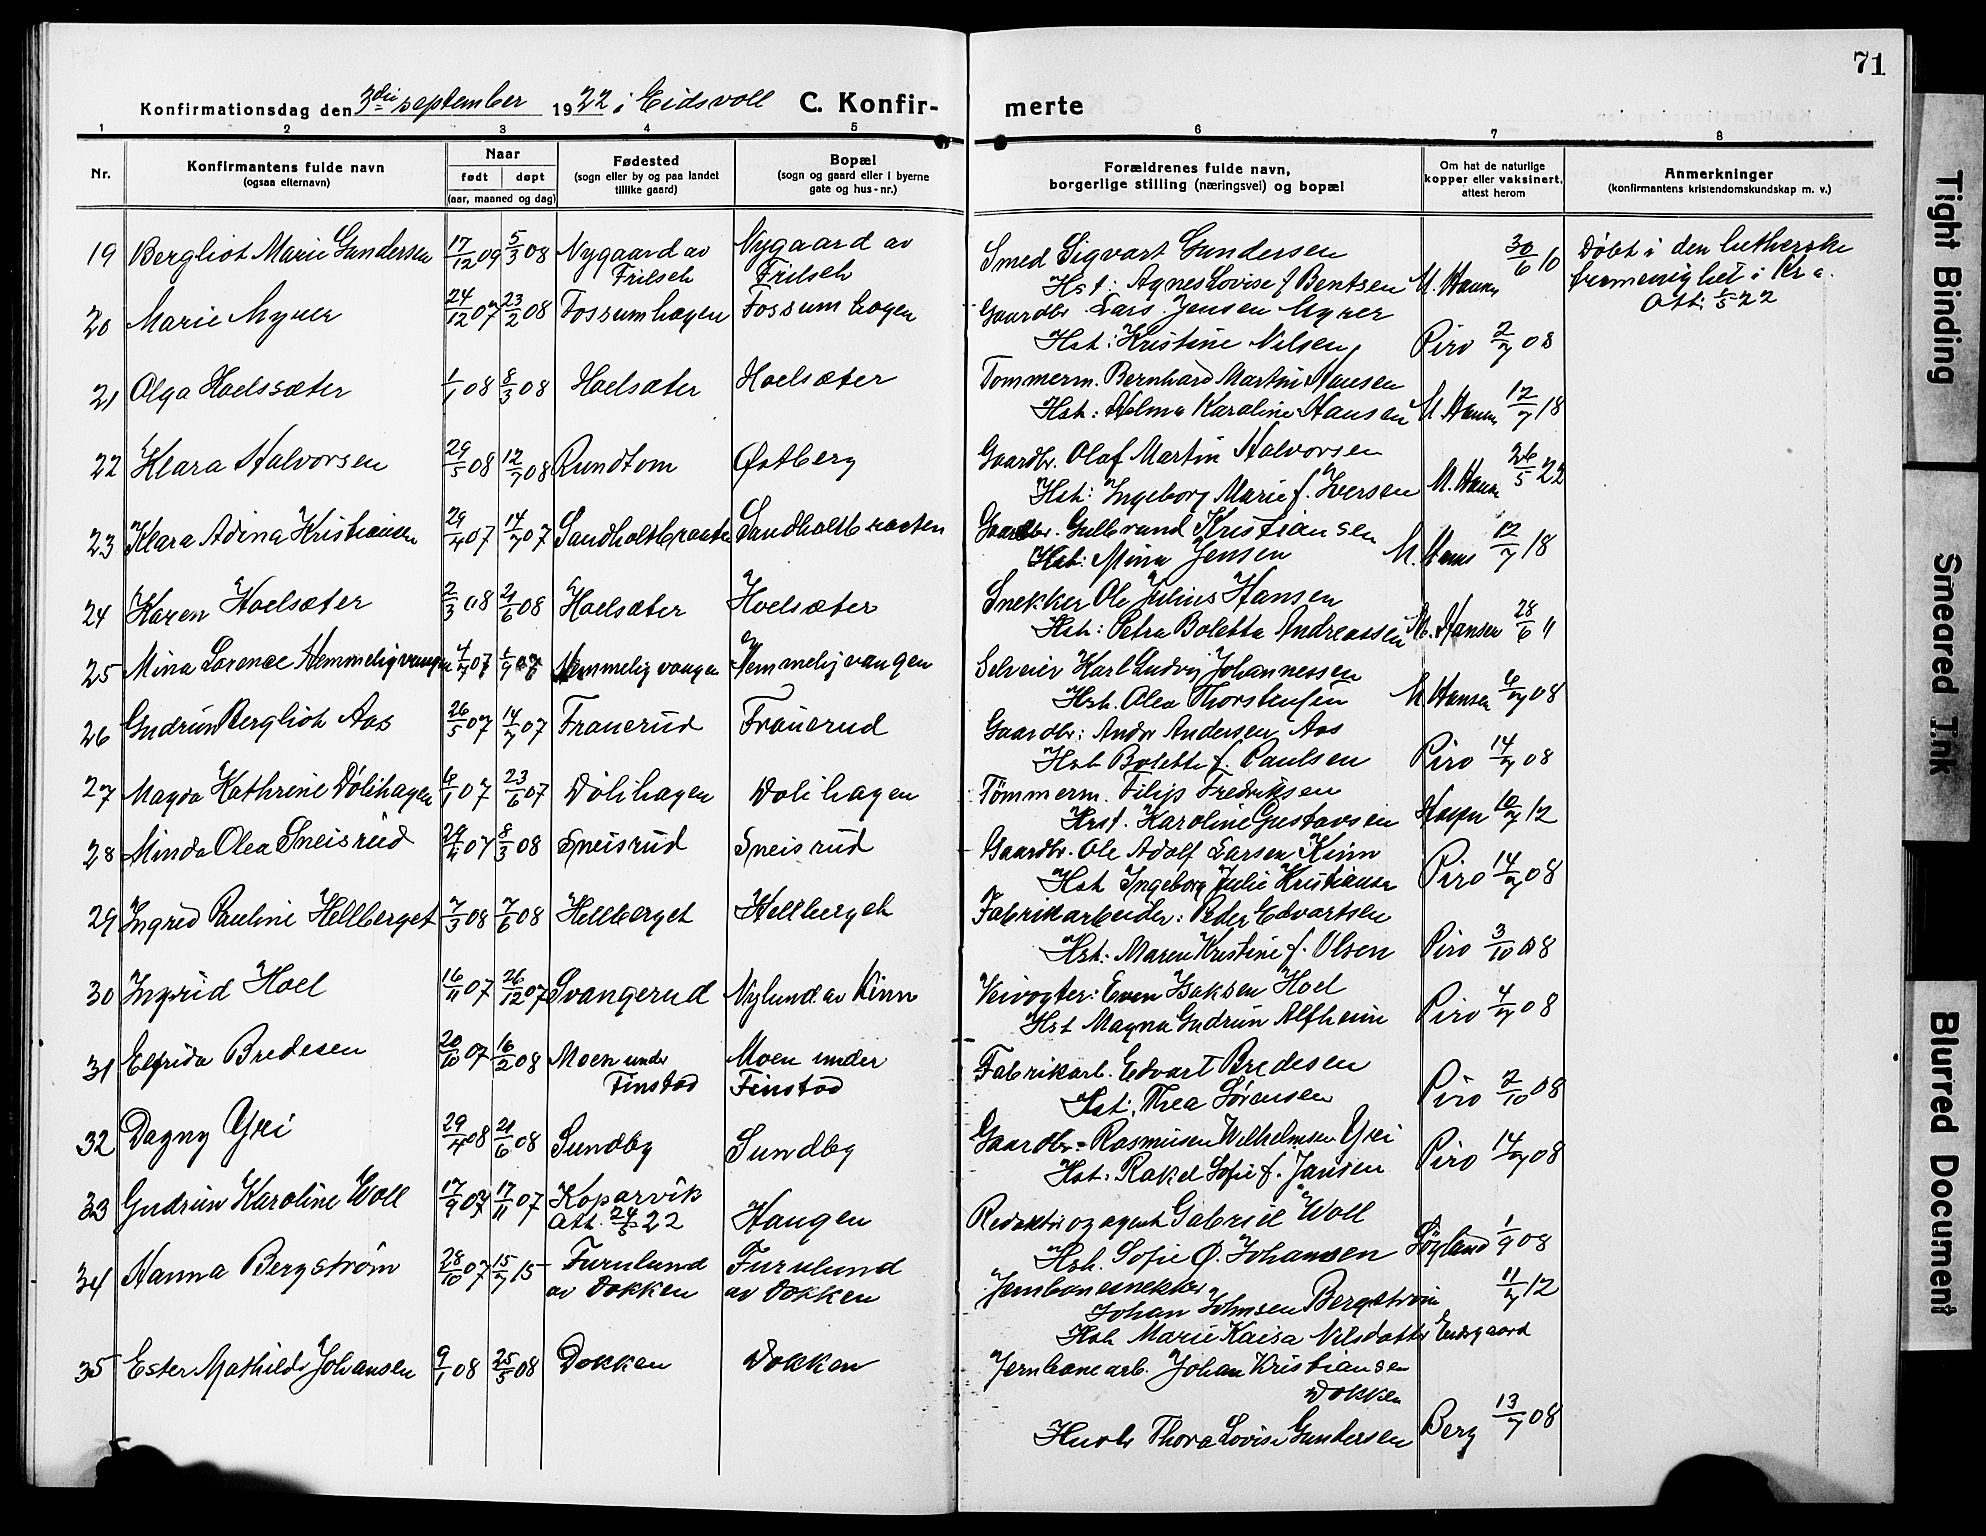 71
Konfirmationsdag den 3die september 1922 i Eidsvoll C. Konfirmerte
1 2 3 4 5 6 7 8
Nr.
Konfirmantens fulde navn
(ogsaa efternavn)
Naar
født døpt
(aar, maaned og dag)
Fødested
(sogn eller by og paa landet
tillike gaard)
Bopæl
(sogn og gaard eller i byerne
gate og hus-nr.)
Forældrenes fulde navn,
borgerlige stilling (næringsvei) og bopæl
Om hat de naturlige
kopper eller vaksinert,
attest herom
Anmerkninger
(konfirmantens kristendomskundskap m. v.)
19 Bergliot Marie Gundersen 17/12 09 5/3 08 Nygaard av Nygaard av Smed Sigvart Gundersen 30/6 10 Døbt i den lutherske
Frilseh Frilseh Hst: Agnes Lovise f Bentsen M. Hansen frimenighet i Kr a.
Att: 1/5 22
20 Marie Myrer 24/12 07 23/2 08 Fossumhagen Fossumhagen Gaardbr Lars Jensen Myrer
Hst: Kristine Nilsen Piro 2/7 08
21 Olga Hoelssæter 1/1 08 8/3 08 Hoelsæter Hoelsæter Tømmerm. Bernhard Martin Hansen
Hst: Helma Karoline Hansen M. Hansen 12/7 18
22 Klara Halvorsen 29/5 08 12/7 08 Rundtom Østberg Gaardbr. Olaf Martin Halvorsen
Hst: Ingeborg Marie f. Iversen M. Hansen 26/5 22
23 Klara Adina Kristiansen 29/4 07 14/7 07 Sandholtbraaten Sandholtbraaten Gaardbr. Gulbrand Kristiansen
Hst: Mina Jensen M. Hans 12/7 18
24 Karen Hoelsæter 2/3 08 21/6 08 Hoelsæter Hoelsæter Snekker Ole Julius Hansen
Hst: Petra Boletta Andreassen M. Hansen 28/6 11
25 Mina Lorence Hemmeligvangen 4/7 07 1/9 07 Hemmeligvangen Hemmeligvangen Selveier Karl Ludvig Johannessen
Hst. Olea Thorstensen M Hansen 6/7 08
26 Gudrun Bergliot Aas 26/5 07 14/7 07 Frauerud Frauerud Gaardbr: Andr Andersen Aas
Hst Bolette f. Paulsen Piro 14/7 08
27 Magda Kathrine Dølihagen 6/1 07 23/6 07 Dølihagen Dølihagen Tømmerm. Filip Fredriksen
Hst. Karoline Gustavsen 10/7 12
28 Minda Olea Sneisrud 29/4 07 8/3 08 Sneisrud Sneisrud Gaardbr. Ole Adolf Larsen Kinn
Hst Ingeborg Julie Kristiansen Piro 14/7 08
29 Ingrid Pauline Hellberget 7/3 08 7/6 08 Hellberget Hellberget Fabrikarbeider: Peder Edvartsen
Hst: Maren Kristine f. Olsen Piro 3/10 08
30 Ingrid Hoel 16/11 07 26/12 07 Svangerud Nylund av Kinn Veivogter: Even Isaksen Hoel
Hst Magna Gudrun Alfheim Piro 4/7 08
31 Elfrida Bredesen 20/10 07 16/2 08 Moen under Moen under Fabrikarb. Edvart Bredesen
Finstad Finstad Hst: Thea Sørensen Piro 2/10 08
32 Dagny Yri 29/4 08 21/6 08 Sundby Sundby Gaardbr- Rasmusen Wilhelmsen Yri
Hst: Rakel Sofie f. Jansen Piro 14/7 08
33 Gudrun Karoline Woll 17/9 07 17/11 07 Kopervik Redaktør og agent Gabriel Woll
Att: 24/5 22 Haugen Hst. Sofie Ø. Johansen Søyland 1/9 08
34 Hanna Bergstrøm 28/10 07 15/7 15 Furulund Furulund
av Dokken av Dokken Johan Johnsen Bergstrøm 11/7 12
Hst Marie Kaisa Nilsdatter
35 Ester Mathilde Johansen 9/1 08 25/5 08 Dokken Dokken Jernbanearb. Johan Kristiansen
Dokken
Hustr Thora Lovise Gundersen Berg 13/7 08
Tight Binding
Smeared Ink
Blurred Document